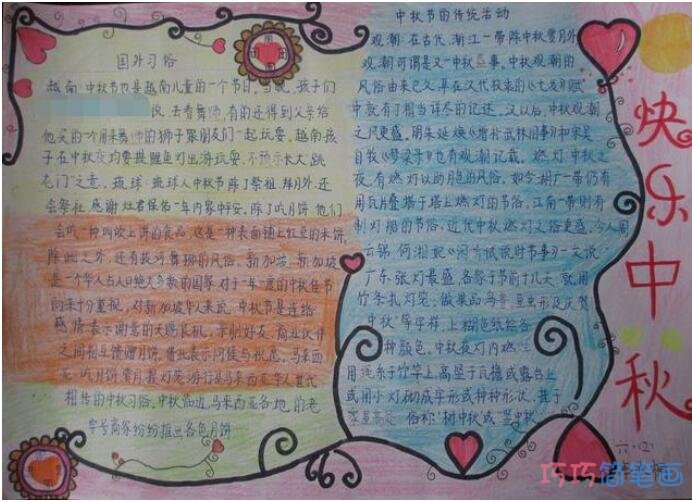 国外习俗
越南 中秋节也是越南儿童的一个节日,当晚,孩子们
没,去看舞狮,有的还得到父亲给
他买的一个用来舞 的狮子聚朋友们一起玩耍,越南孩
子在中秋夜均要提鲤鱼灯出游玩耍,不预示长大"跳
龙门"之意,琉球·琉球人中秋节除了祭祖、拜月外,还
会祭社,感谢灶君保佑一年内家中平安,除了吃月饼,他们
会吃一种叫吹上饼的食品,这是一种表面铺上红豆的米饼,
除此之外,还有拔河 舞狮的风俗、新加坡·新加坡
是一个华人占人口绝大多数的国家,对于一年一度的中秋佳节
向来十分重视,对新加坡华人来说,中秋节是连络
感情 表示谢意的天赐良机,亲朋好友、商业伙伴
之间相互馈赠月饼,借此表示问候与祝愿,马来西
亚·吃月饼 赏月 提灯笼游行是马来西亚华人世代
相传的中秋习俗,中秋临近,马来西亚各地的老
字号商家纷纷推出各色月饼
中秋节的传统活动
观潮·在古代,浙江一带除中秋赏月外
观潮可谓是又一中秋盛事,中秋观潮的
风俗由来已久,早在汉代枚乘的《七发》赋
中就有了相当详尽的记述,汉以后,中秋观潮
之风更盛,明朱廷焕《增补武林旧事》和宋吴
自牧《梦梁录》也有观潮记载,燃灯·中秋之
夜,有燃灯以助月色的风俗,如今湖广一带仍有
用瓦片叠塔于塔上燃灯的节俗,江南一带则有
制灯船的节俗,近代中秋燃灯之俗更盛,今人周
云锦、何湘妃《闲情试说时节事》一文说
广东张灯最盛,各家于节前十几天,就用
竹条扎灯笼,做果品 鸟兽 鱼虫形及庆贺
中秋"等字样,上糊色纸绘各
种颜色,中秋夜灯内燃
用绳系于竹竿上,高竖于瓦檐或露台上
或用小灯砌成字形或种种形状,挂于
家屋高处 俗称"树中秋"或"竖中秋"
快乐中秋
六·(2)
巧巧简笔画